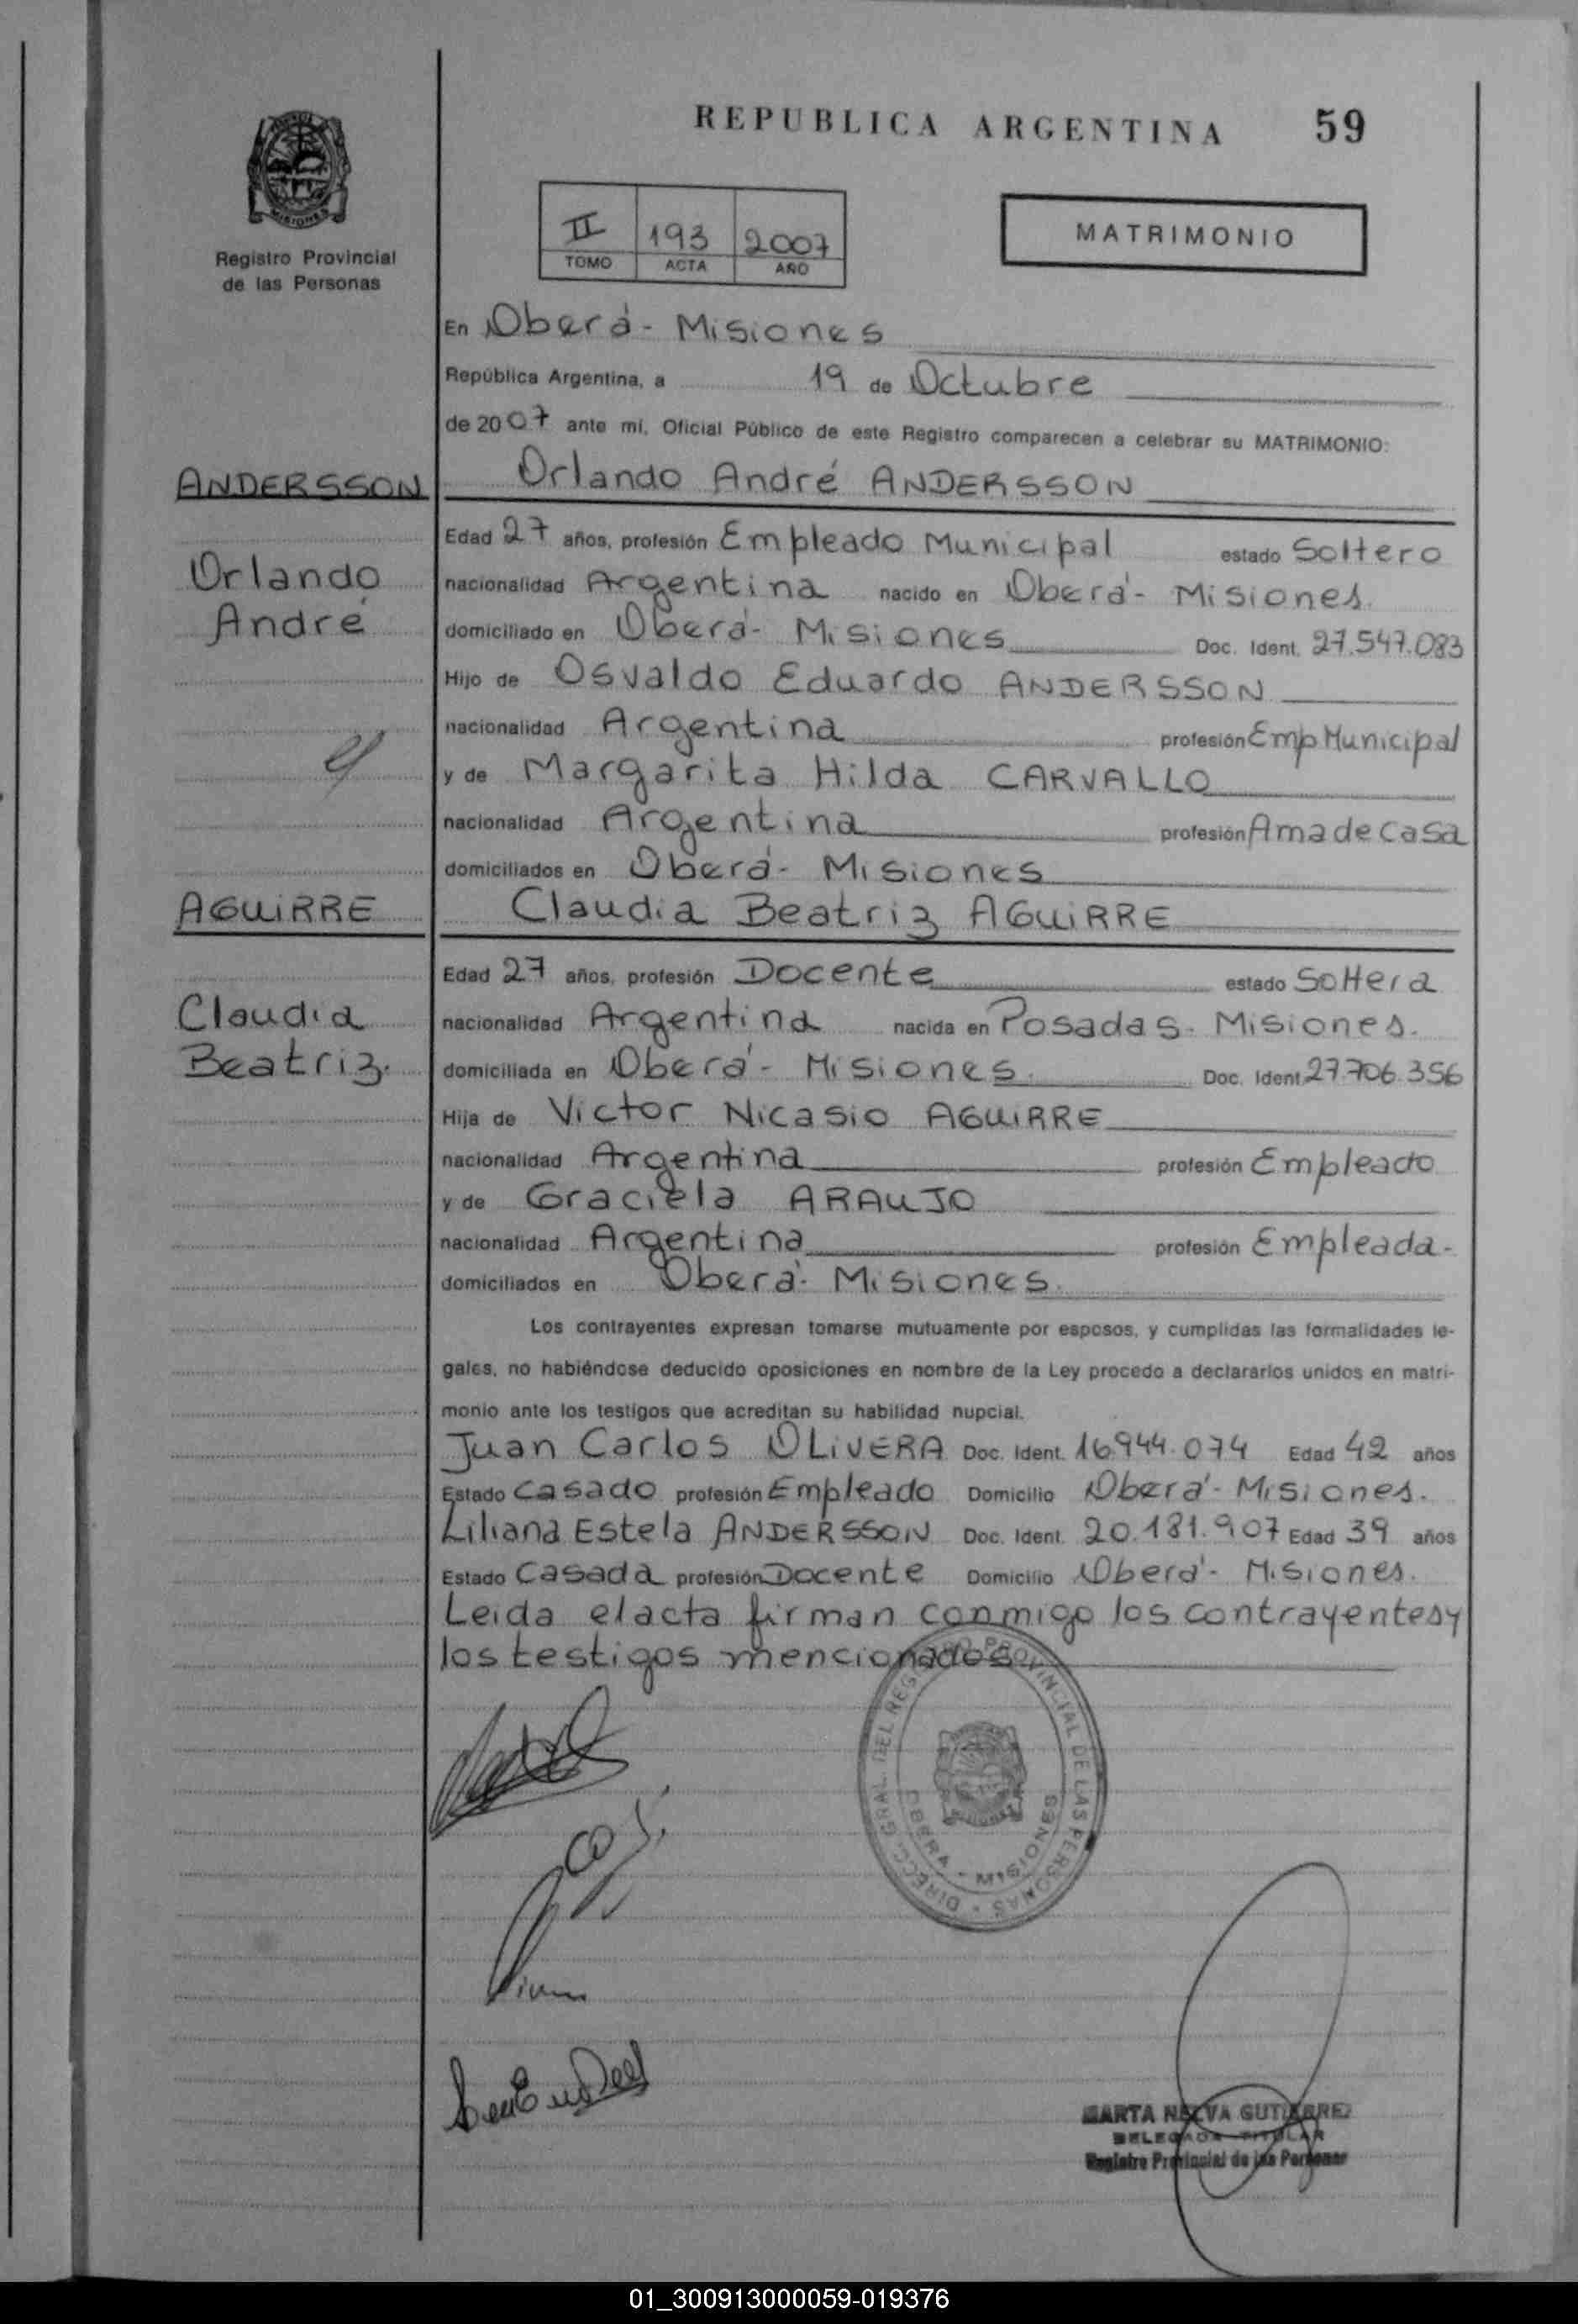 REPUBLICA ARGENTINA 59
MISIONES
Registro Provincial
de las Personas
II 193 2007
TOMO ACTA AÑO
MATRIMONIO
En Oberá - Misiones
República Argentina, a 19 de Octubre
de 2007 ante mí, Oficial Público de este Registro comparecen a celebrar su MATRIMONIO:
ANDERSSON Orlando André ANDERSSON
Edad 27 años, profesión Empleado Municipal estado Soltero
Orlando nacionalidad Argentina nacido en Oberá - Misiones.
André domiciliado en Oberá - Misiones Doc. Ident. 27.547.083
Hijo de Osvaldo Eduardo ANDERSSON
nacionalidad Argentina profesión Emp Municipal
y de Margarita Hilda CARVALLO
nacionalidad Argentina profesión Ama de Casa
domiciliados en Oberá - Misiones
AGUIRRE Claudia Beatriz AGUIRRE
Edad 27 años, profesión Docente estado Soltera
Claudia nacionalidad Argentina nacida en Posadas - Misiones.
Beatriz. domiciliada en Oberá - Misiones. Doc. Ident. 27.706.356
Hija de Victor Nicasio AGUIRRE
nacionalidad Argentina profesión Empleado
y de Graciela ARAUJO
nacionalidad Argentina profesión Empleada -
domiciliados en Oberá - Misiones.
Los contrayentes expresan tomarse mutuamente por esposos, y cumplidas las formalidades le-
gales, no habiéndose deducido oposiciones en nombre de la Ley procedo a declararlos unidos en matri-
monio ante los testigos que acreditan su habilidad nupcial.
Juan Carlos OLIVERA Doc. Ident. 16.944.074 Edad 42 años
Estado Casado profesión Empleado Domicilio Oberá - Misiones.
Liliana Estela ANDERSSON Doc. Ident. 20.181.907 Edad 39 años
Estado Casada profesión Docente Domicilio Oberá - Misiones.
Leida el acta firman conmigo los contrayentes y
los testigos mencionados
DIRECC. GRAL. DEL REGISTRO PROVINCIAL DE LAS PERSONAS
OBERA - MISIONES
MARTA NELVA GUTIERREZ
DELEGADA TITULAR
Registro Provincial de las Personas
01_300913000059-019376